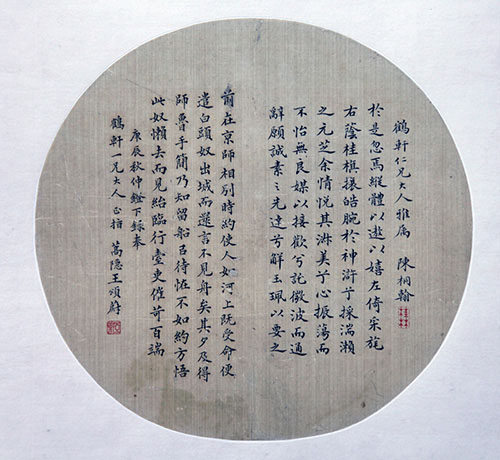 鶴軒仁兄大人雅属 陳桐翰
於是忽焉縱體以遨以嬉左倚采旄
右蔭桂旗攘皓腕於神滸兮採湍瀨
之元芝余情悅其淑美兮心振蕩而
不怡無良媒以接歡兮託微波而通
辭願誠素之先達兮解玉珮以要之
前在京師相別時約使人如河上既受命便
遣白頭奴出城而還言不見舟矣其夕及得
師魯手簡乃知留船以待怪不如約方悟
此奴懶去而見紿臨行臺吏催苛百端
庚辰秋仲鐙下錄奉
鶴軒一兄大人正指 蒿隱王頌蔚